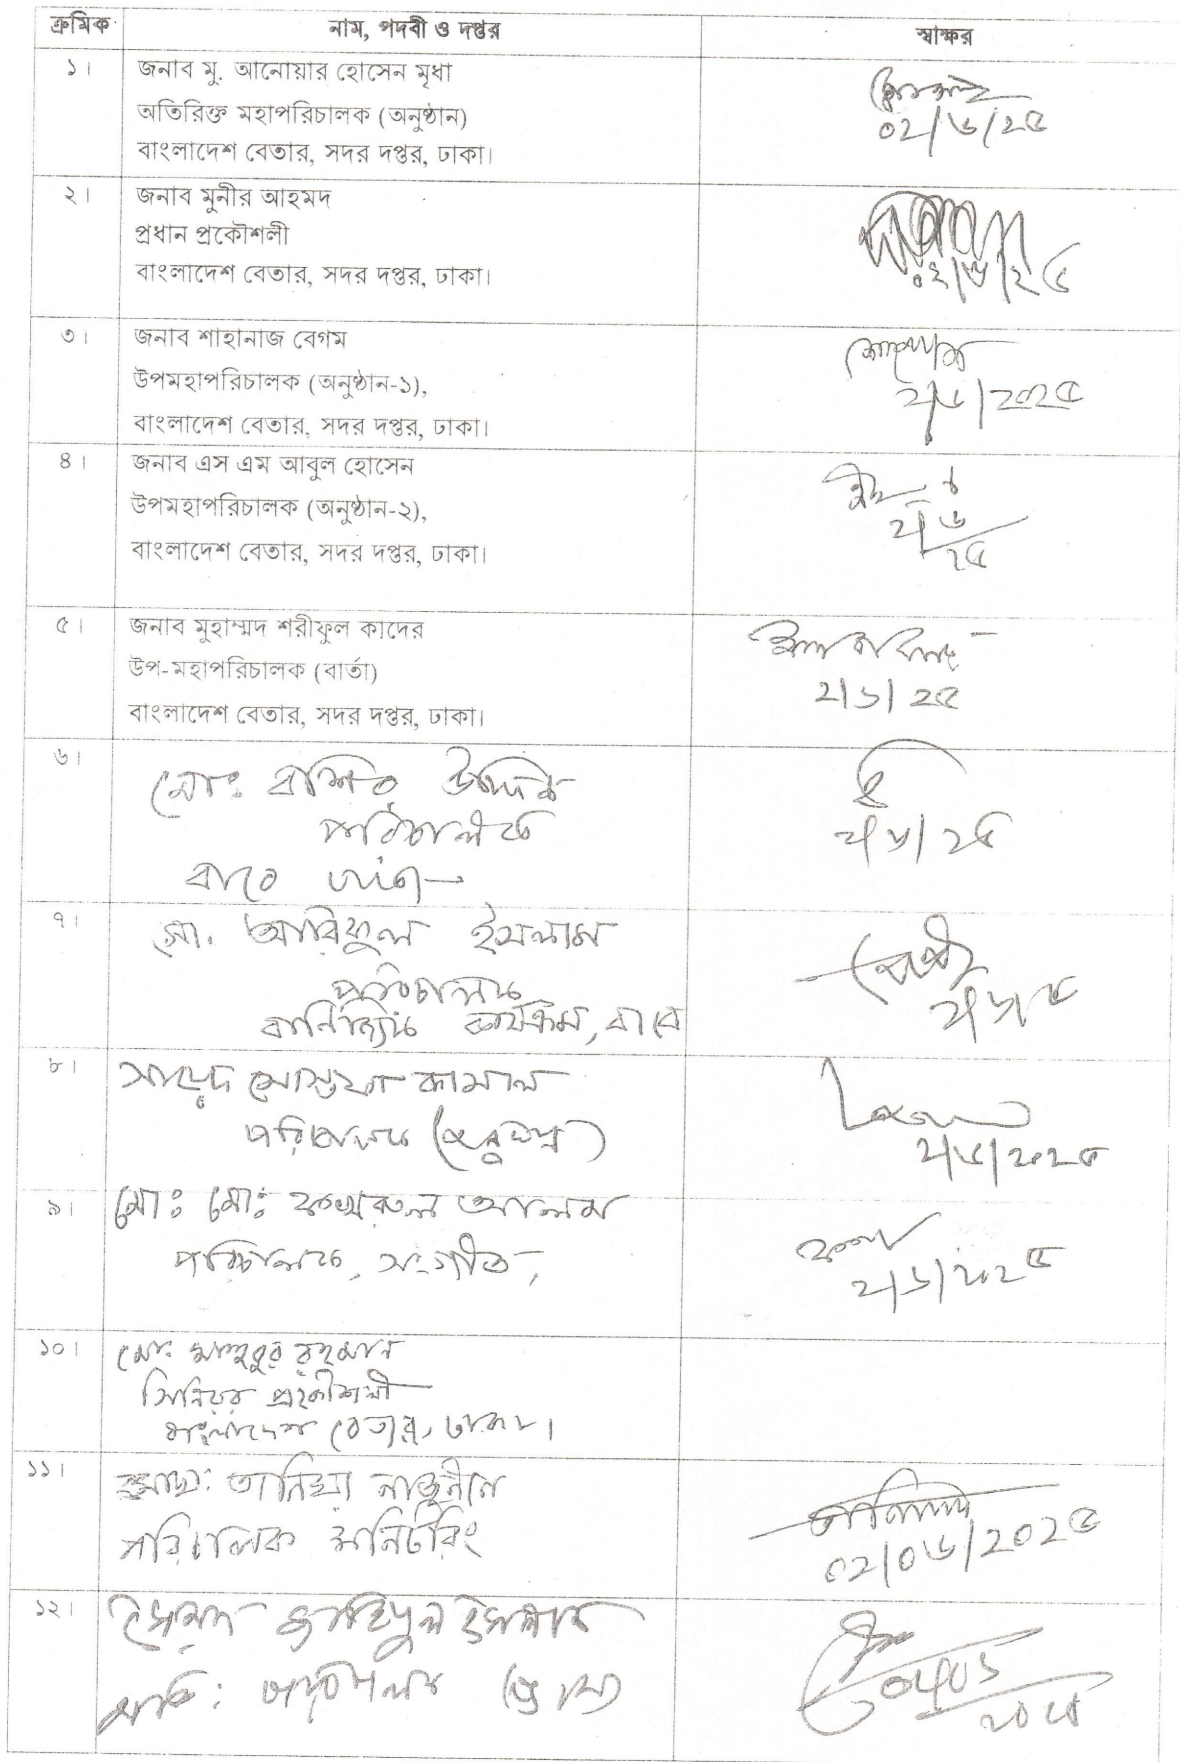 ক্রমিক নাম, পদবী ও দপ্তর স্বাক্ষর
১। জনাব মু. আনোয়ার হোসেন মৃধা
অতিরিক্ত মহাপরিচালক (অনুষ্ঠান)
বাংলাদেশ বেতার, সদর দপ্তর, ঢাকা।
০২/৬/২৫
২। জনাব মুনীর আহমদ
প্রধান প্রকৌশলী
বাংলাদেশ বেতার, সদর দপ্তর, ঢাকা।
০২/৬/২৫
৩। জনাব শাহানাজ বেগম
উপমহাপরিচালক (অনুষ্ঠান-১),
বাংলাদেশ বেতার, সদর দপ্তর, ঢাকা।
২/৬/২০২৫
৪। জনাব এস এম আবুল হোসেন
উপমহাপরিচালক (অনুষ্ঠান-২),
বাংলাদেশ বেতার, সদর দপ্তর, ঢাকা।
২/৬
২৫
৫। জনাব মুহাম্মদ শরীফুল কাদের
উপ-মহাপরিচালক (বার্তা)
বাংলাদেশ বেতার, সদর দপ্তর, ঢাকা।
২/৬/২৫
৬। মোঃ বশির উদ্দিন
পরিচালক
২/৬/২৫
৭। মো. আরিফুল ইসলাম
পরিচালক
বানিজ্যিক কার্যক্রম, বাবে
২/৬/২৫
৮। সায়েদ মোস্তফা কামাল
পরিচালক
২/৬/২০২৫
৯। মোঃ মোঃ ফখরুল আলম
পরিচালক, সংগীত,
২/৬/২০২৫
১০। মোঃ মাহবুবুর রহমান
সিনিয়র প্রকৌশলী
বাংলাদেশ বেতার, ঢাকা।
১১। তানিয়া নাজনীন
পরিচালক মনিটরিং
তানিয়া
০২/০৬/২০২৫
১২। জাহিদুল ইসলাম
০২/০৬
২০২৫